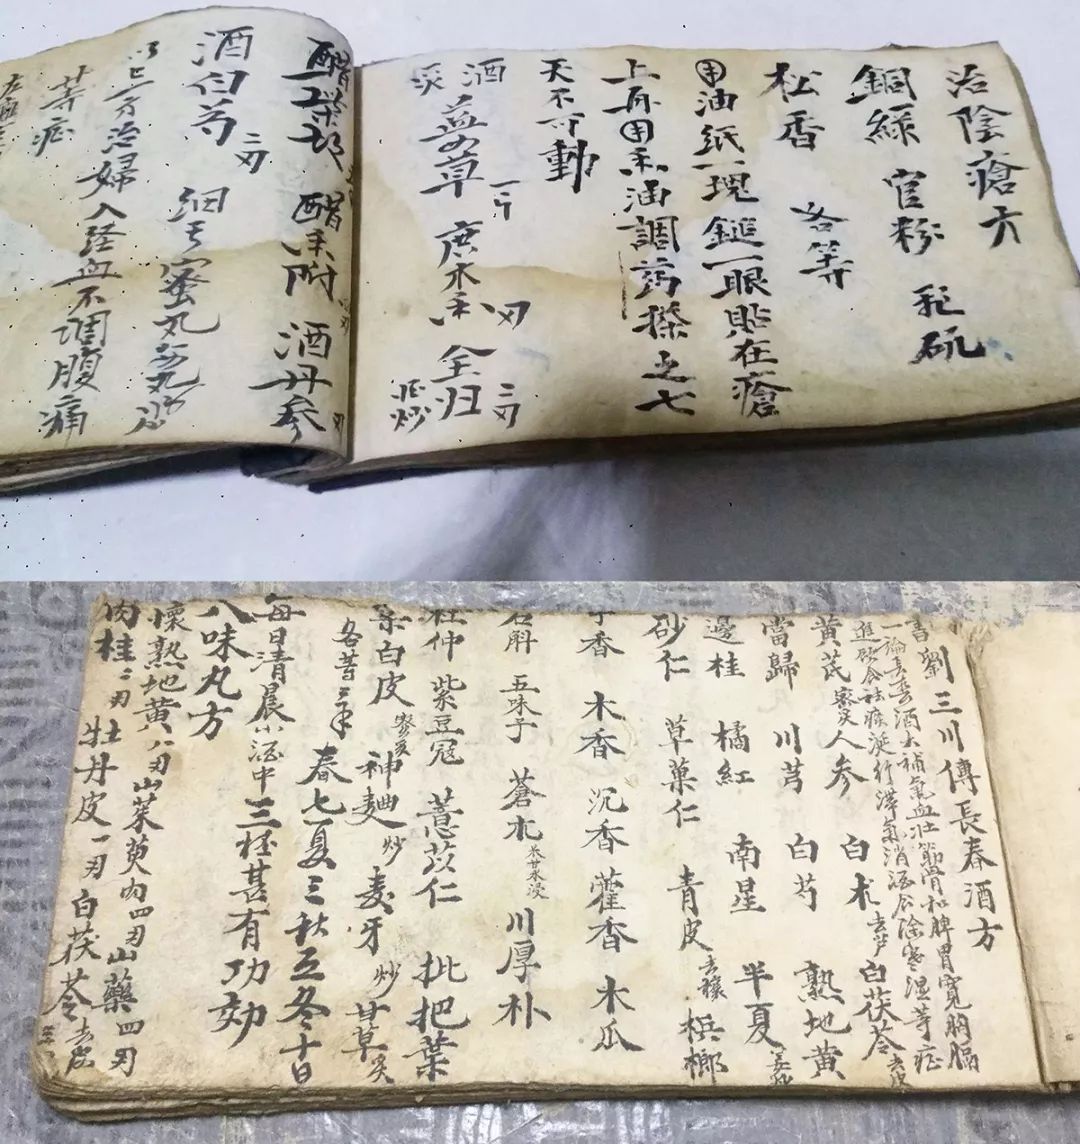 治陰瘡方
銅綠 官粉 硫
松香 各等
用油紙一塊鎚一眼貼在瘡
上再用香油調药搽之七
天不可動
酒炙 益母草 一斤 全归 三刄 酒炒
醋柴胡 醋香附 酒丹参 刄
酒白芍 三刄 細 蜜丸
以上方治婦人経血不调腹痛
等症
書劉三川傳長春酒方
一論長春酒大補氣血壯筋骨和脾胃寬胸膈
進飲食祛痰涎行滯氣消酒谷除寒湿等症
黄芪 蜜炙 人参 白朮 去芦 白茯苓 去皮
當歸 川芎 白芍 熟地黄
邊桂 橘紅 南星 半夏
砂仁 草菓仁 青皮 去穰 梹榔
丁香 木香 沉香 藿香 木瓜
石斛 五味子 蒼朮 米甘水浸 川厚朴
杜仲 紫豆冦 薏苡仁 批把葉
桑白皮 蜜炙 神麯 炒 麦牙 炒 甘草 炙
各等 春七夏三秋五冬十日
每日清晨小酒中三杯甚有功効
八味丸方
懷熟地黄八刄 山茱萸肉四刄 山藥四刄
肉桂二刄 牡丹皮一刄 白茯苓 去皮 三